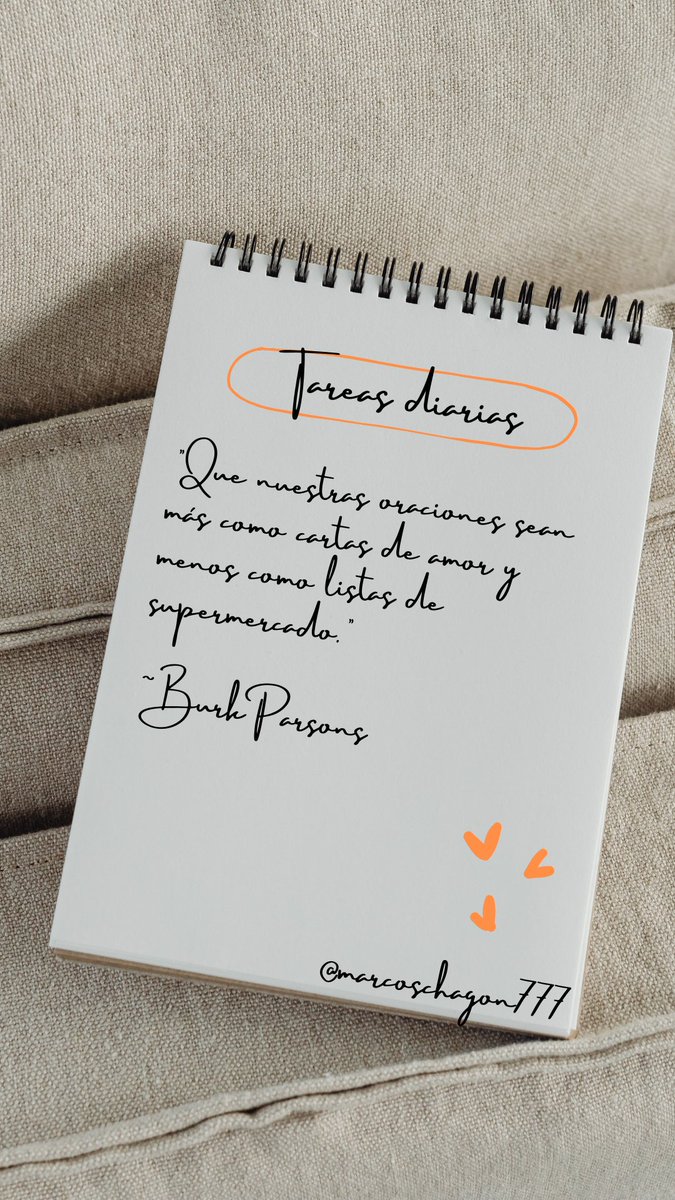 Tareas diarias
"Que nuestras oraciones sean
más como cartas de amor y
menos como listas de
supermercado."
~Burk Parsons
@marcoschagon777